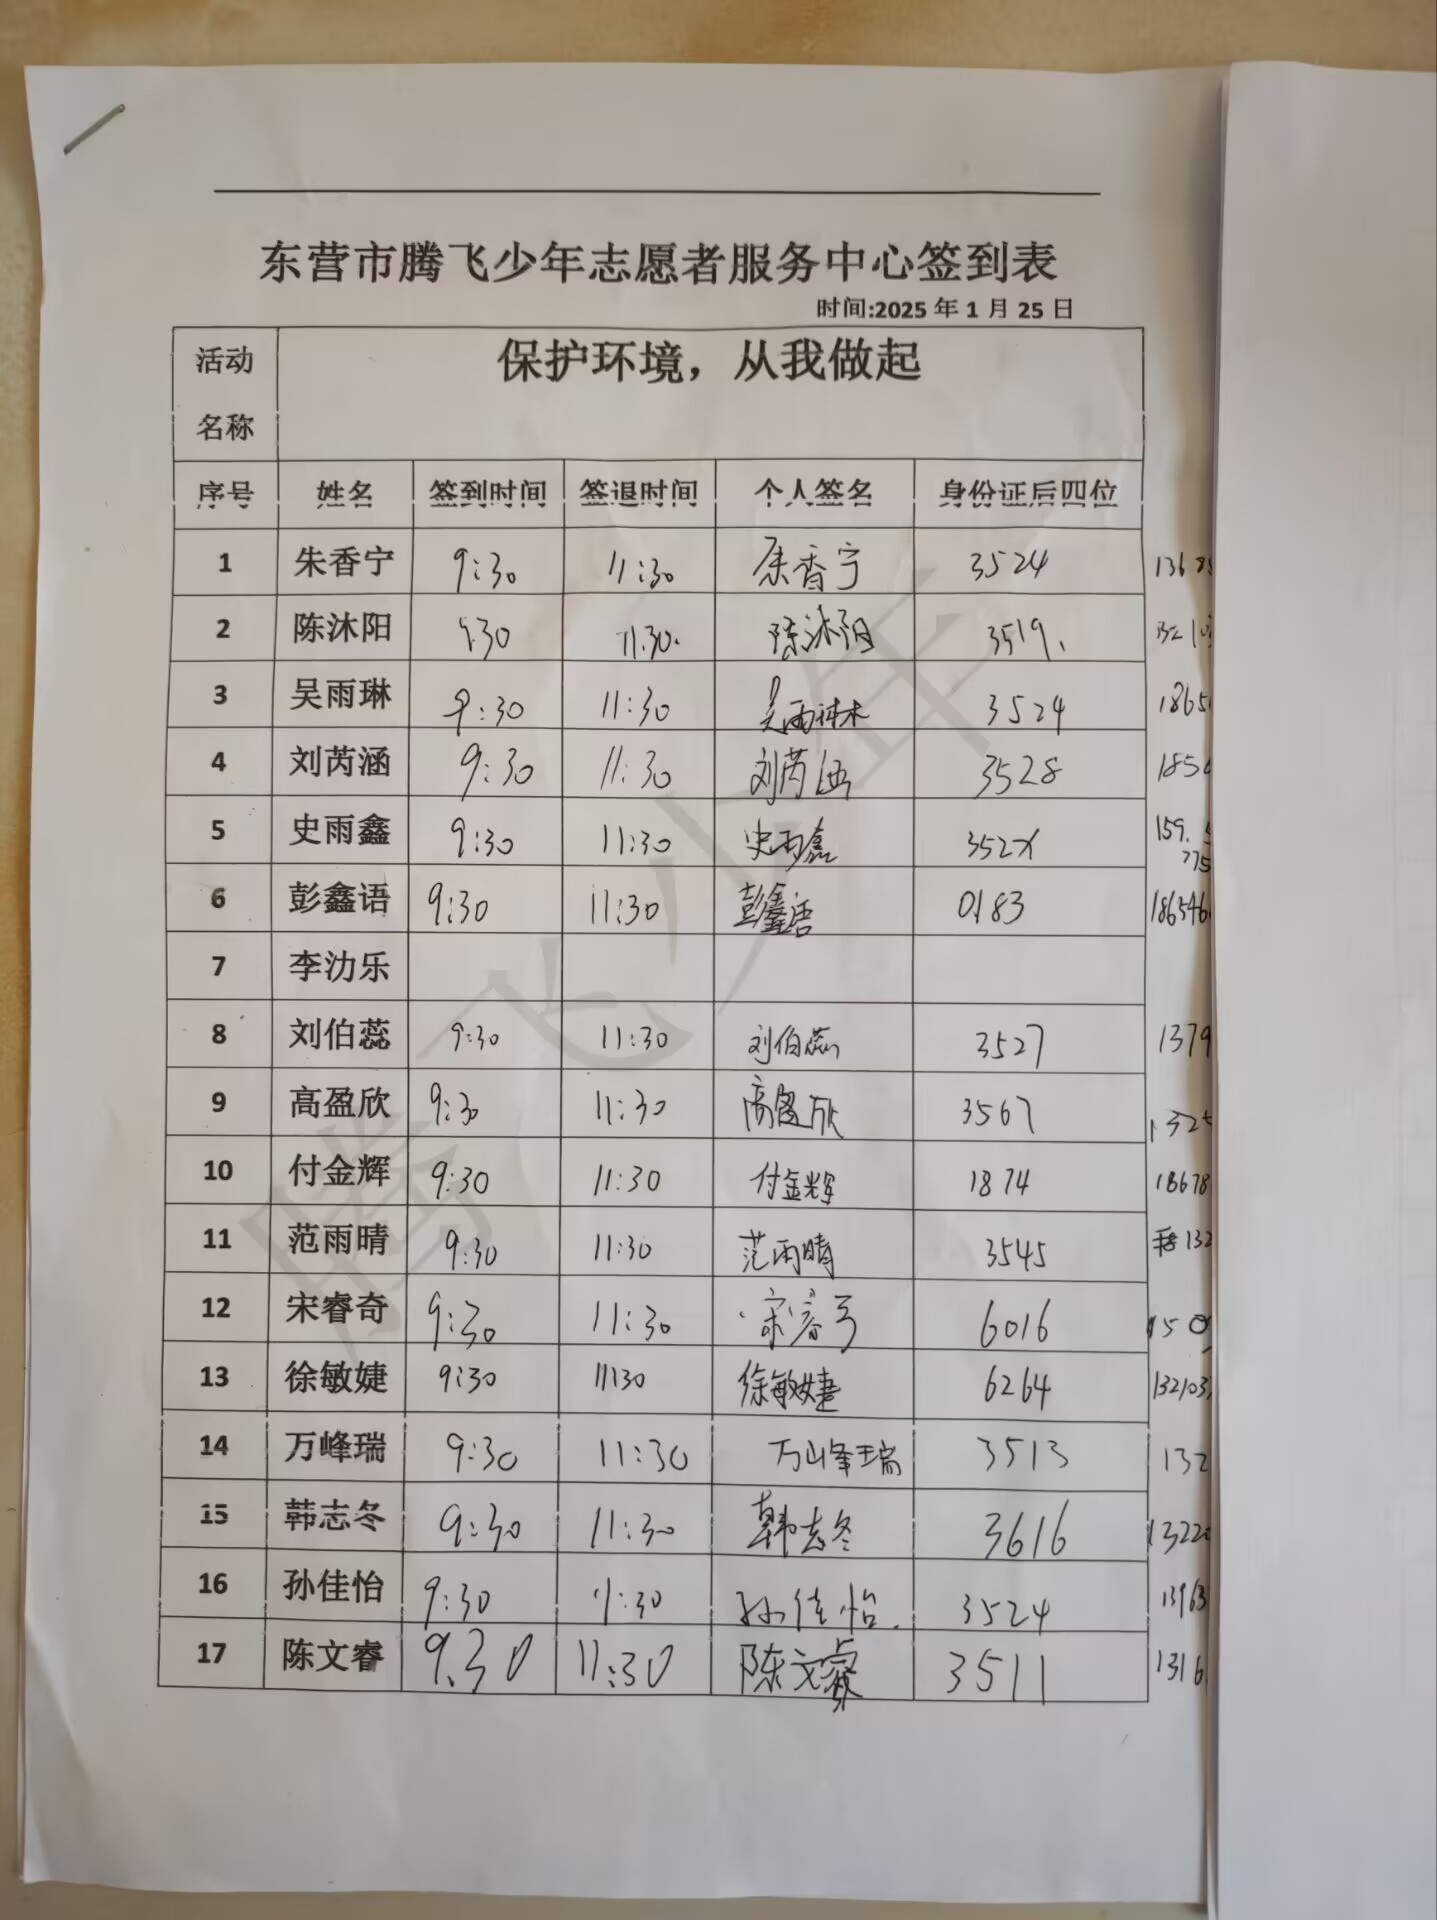 东营市腾飞少年志愿者服务中心签到表
时间:2025 年 1 月 25 日
活动名称 保护环境，从我做起
序号 姓名 签到时间 签退时间 个人签名 身份证后四位
1 朱香宁 9:30 11:30 朱香宁 3524
2 陈沐阳 9:30 11:30. 陈沐阳 3519.
3 吴雨琳 9:30 11:30 吴雨琳 3524 1865
4 刘芮涵 9:30 11:30 刘芮涵 3528 185
5 史雨鑫 9:30 11:30 史雨鑫 352X 159.
775
6 彭鑫语 9:30 11:30 彭鑫语 0183 186546
7 李沕乐
8 刘伯蕊 9:30 11:30 刘伯蕊 3527 1379
9 高盈欣 9:30 11:30 高盈欣 3567 132
10 付金辉 9:30 11:30 付金辉 1874 18678
11 范雨晴 9:30 11:30 范雨晴 3545 132
12 宋睿奇 9:30 11:30 宋睿奇 6016
13 徐敏婕 9:30 11:30 徐敏婕 6264 132103
14 万峰瑞 9:30 11:30 万峰瑞 3513 132
15 韩志冬 9:30 11:30 韩志冬 3616 1322
16 孙佳怡 9:30 11:30 孙佳怡. 3524 1396
17 陈文睿 9.30 11:30 陈文睿 3511 1316
腾飞少年